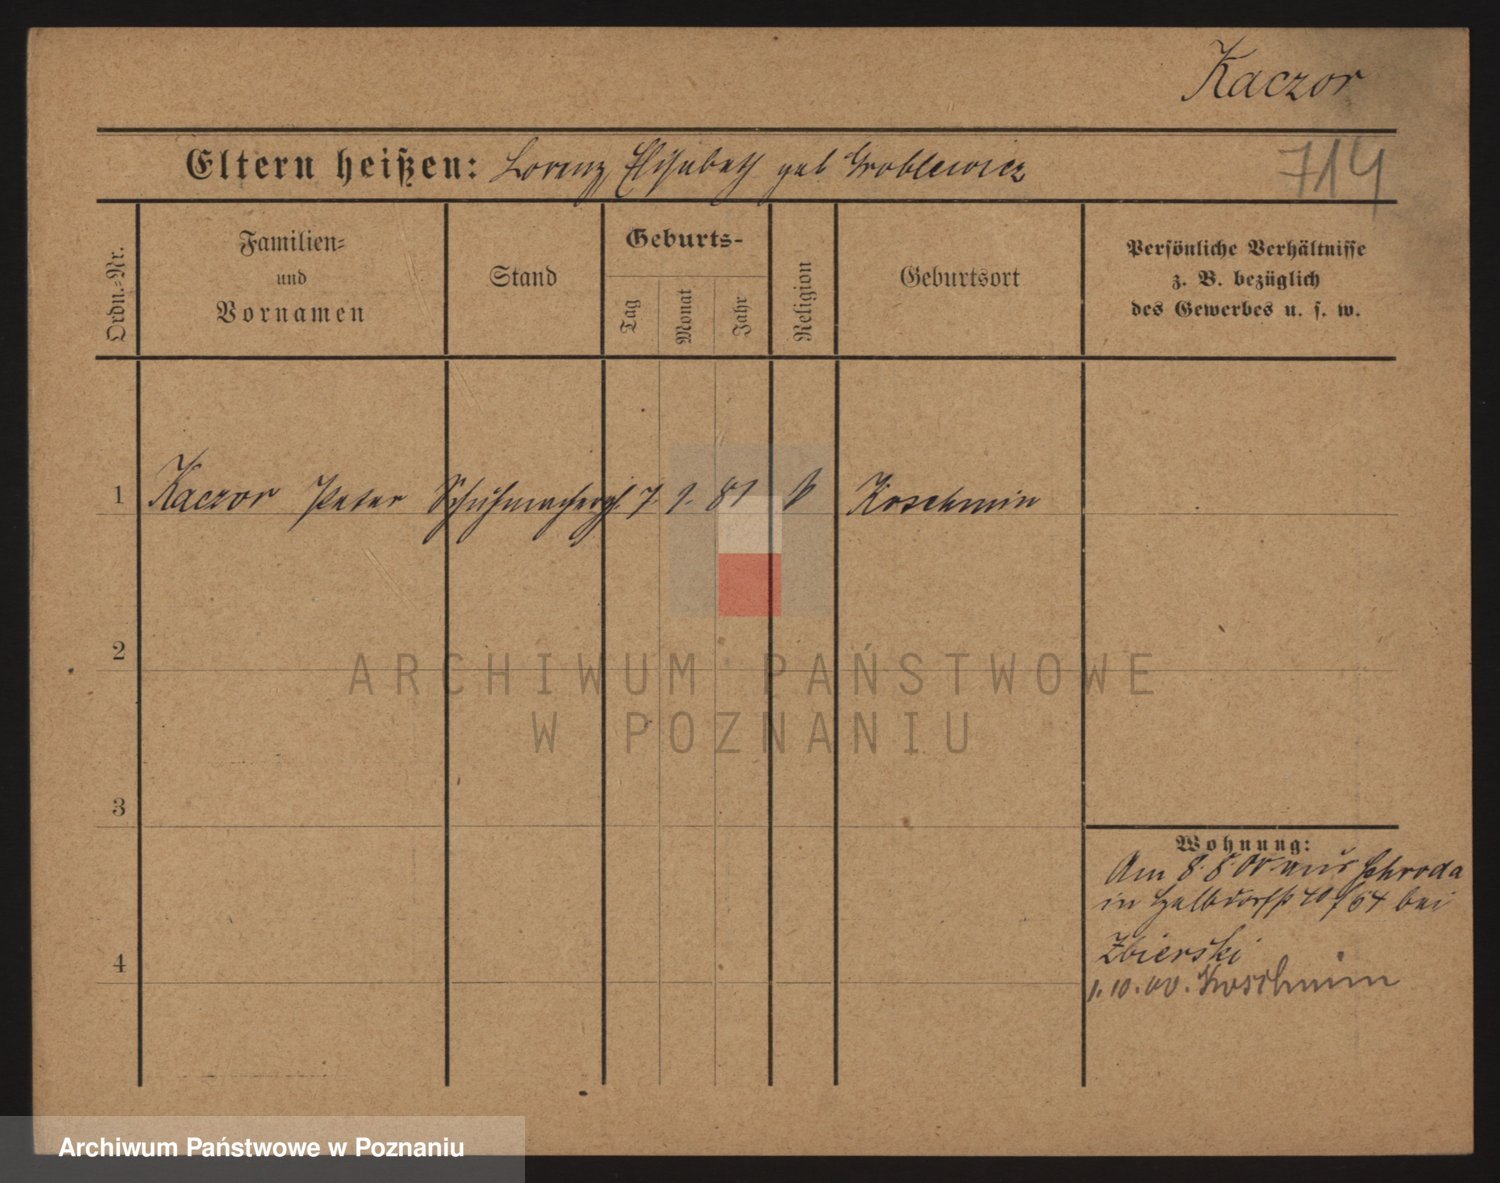 Kaczor
714
Eltern heißen: Lorenz, Elisabeth geb Groblewicz
Ordn.-Nr.
Familien-
und
Vornamen
Stand
Geburts-
Tag
Monat
Jahr
Religion
Geburtsort
Persönliche Verhältnisse
z. B. bezüglich
des Gewerbes u. s. w.
1 Kaczor Peter Schuhmacherges. 7. 9. 81 k Koschmin
2
ARCHIWUM PAŃSTWOWE
W POZNANIU
3
Wohnung:
Am 8. 8. 00 aus Schroda
in Halbdorfstr bei
Zbierski
4
1. 10. 00. Koschmin
Archiwum Państwowe w Poznaniu